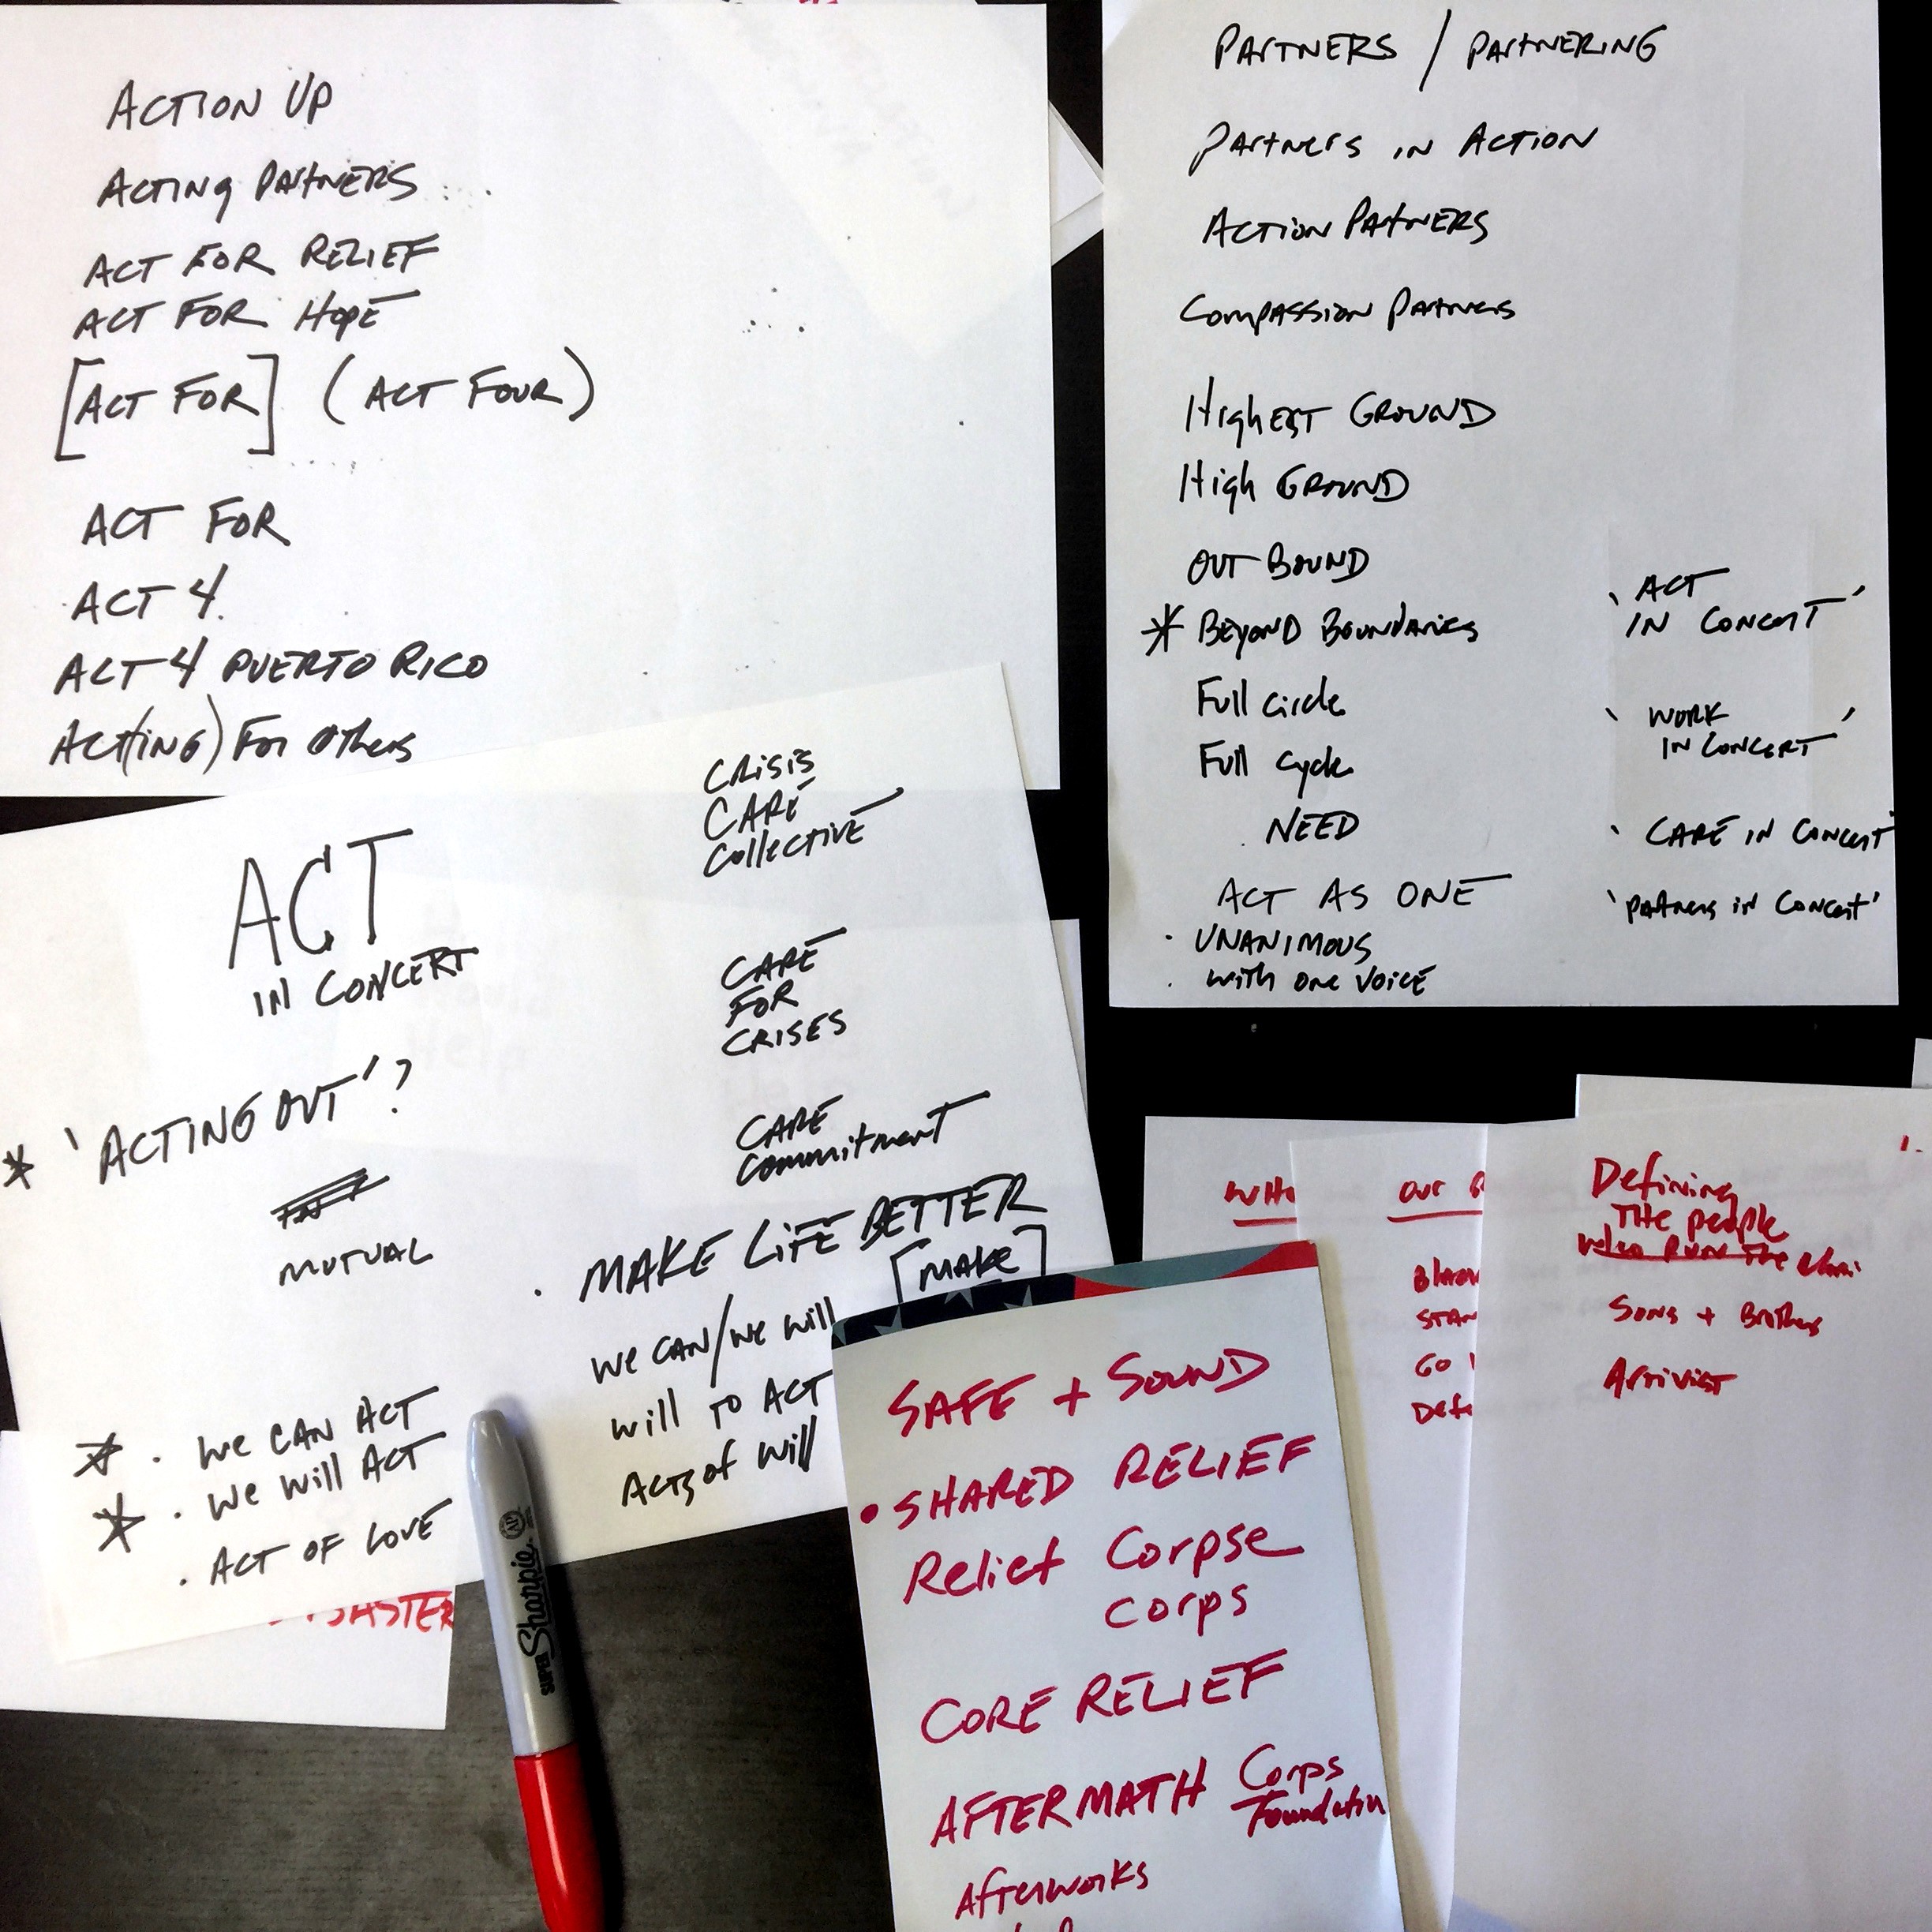 ACTION UP
ACTING PARTNERS
ACT FOR RELIEF
ACT FOR HOPE
[ACT FOR] (ACT FOUR)
ACT FOR
ACT 4
ACT 4 PUERTO RICO
ACT(ING) FOR OTHERS
PARTNERS / PARTNERING
PARTNERS IN ACTION
ACTION PARTNERS
COMPASSION PARTNERS
HIGHEST GROUND
HIGH GROUND
OUT BOUND
* BEYOND BOUNDARIES
Full circle
Full cycle
NEED
ACT AS ONE
· UNANIMOUS
· with one voice
'ACT
IN CONCERT'
'WORK
IN CONCERT'
'CARE IN CONCERT'
'PARTNERS IN CONCERT'
ACT
IN CONCERT
* 'ACTING OUT'?
MUTUAL
* · WE CAN ACT
* · WE WILL ACT
· ACT OF LOVE
CRISIS
CARE
COLLECTIVE
CARE
FOR
CRISES
CARE
COMMITMENT
· MAKE LIFE BETTER
[MAKE]
WE CAN/WE WILL
WILL TO ACT
ACTS OF WILL
DISASTER
SUPER Sharpie
SAFE + SOUND
• SHARED RELIEF
Relief Corpse
corps
CORE RELIEF
AFTERMATH Corps
Foundation
Afterworks
WHO
OUR
STAN
GO
Defi
Defining
THE people
who RUN THE
Sons + Brothers
Activist